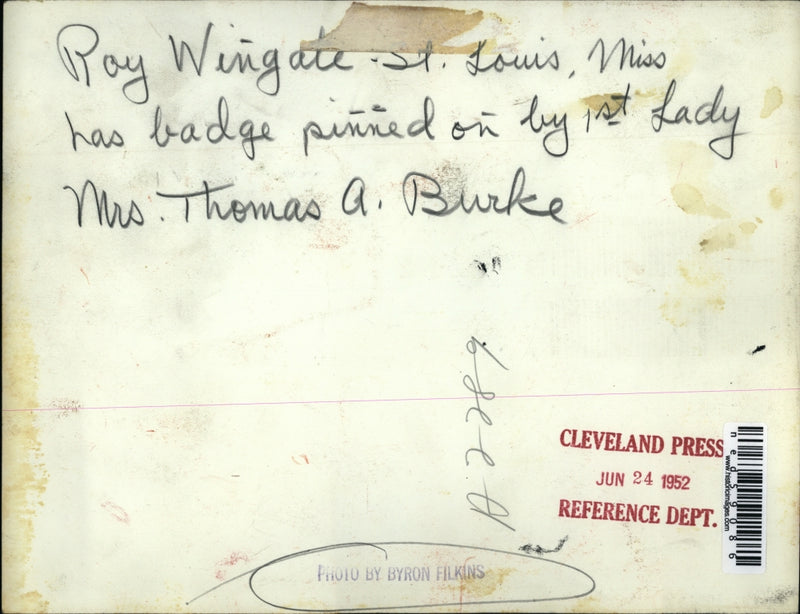 Roy Wingate - St. Louis, Miss
has badge pinned on by 1st Lady
Mrs. Thomas A. Burke
A2289
CLEVELAND PRESS
JUN 24 1952
REFERENCE DEPT.
ned59086
www.historicimages.com
PHOTO BY BYRON FILKINS